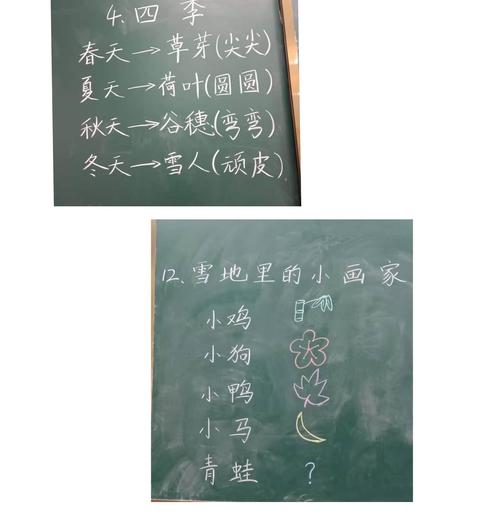 4.四 季
春天→草芽(尖尖)
夏天→荷叶(圆圆)
秋天→谷穗(弯弯)
冬天→雪人(顽皮)
12.雪地里的小画家
小鸡
小狗
小鸭
小马
青蛙 ?